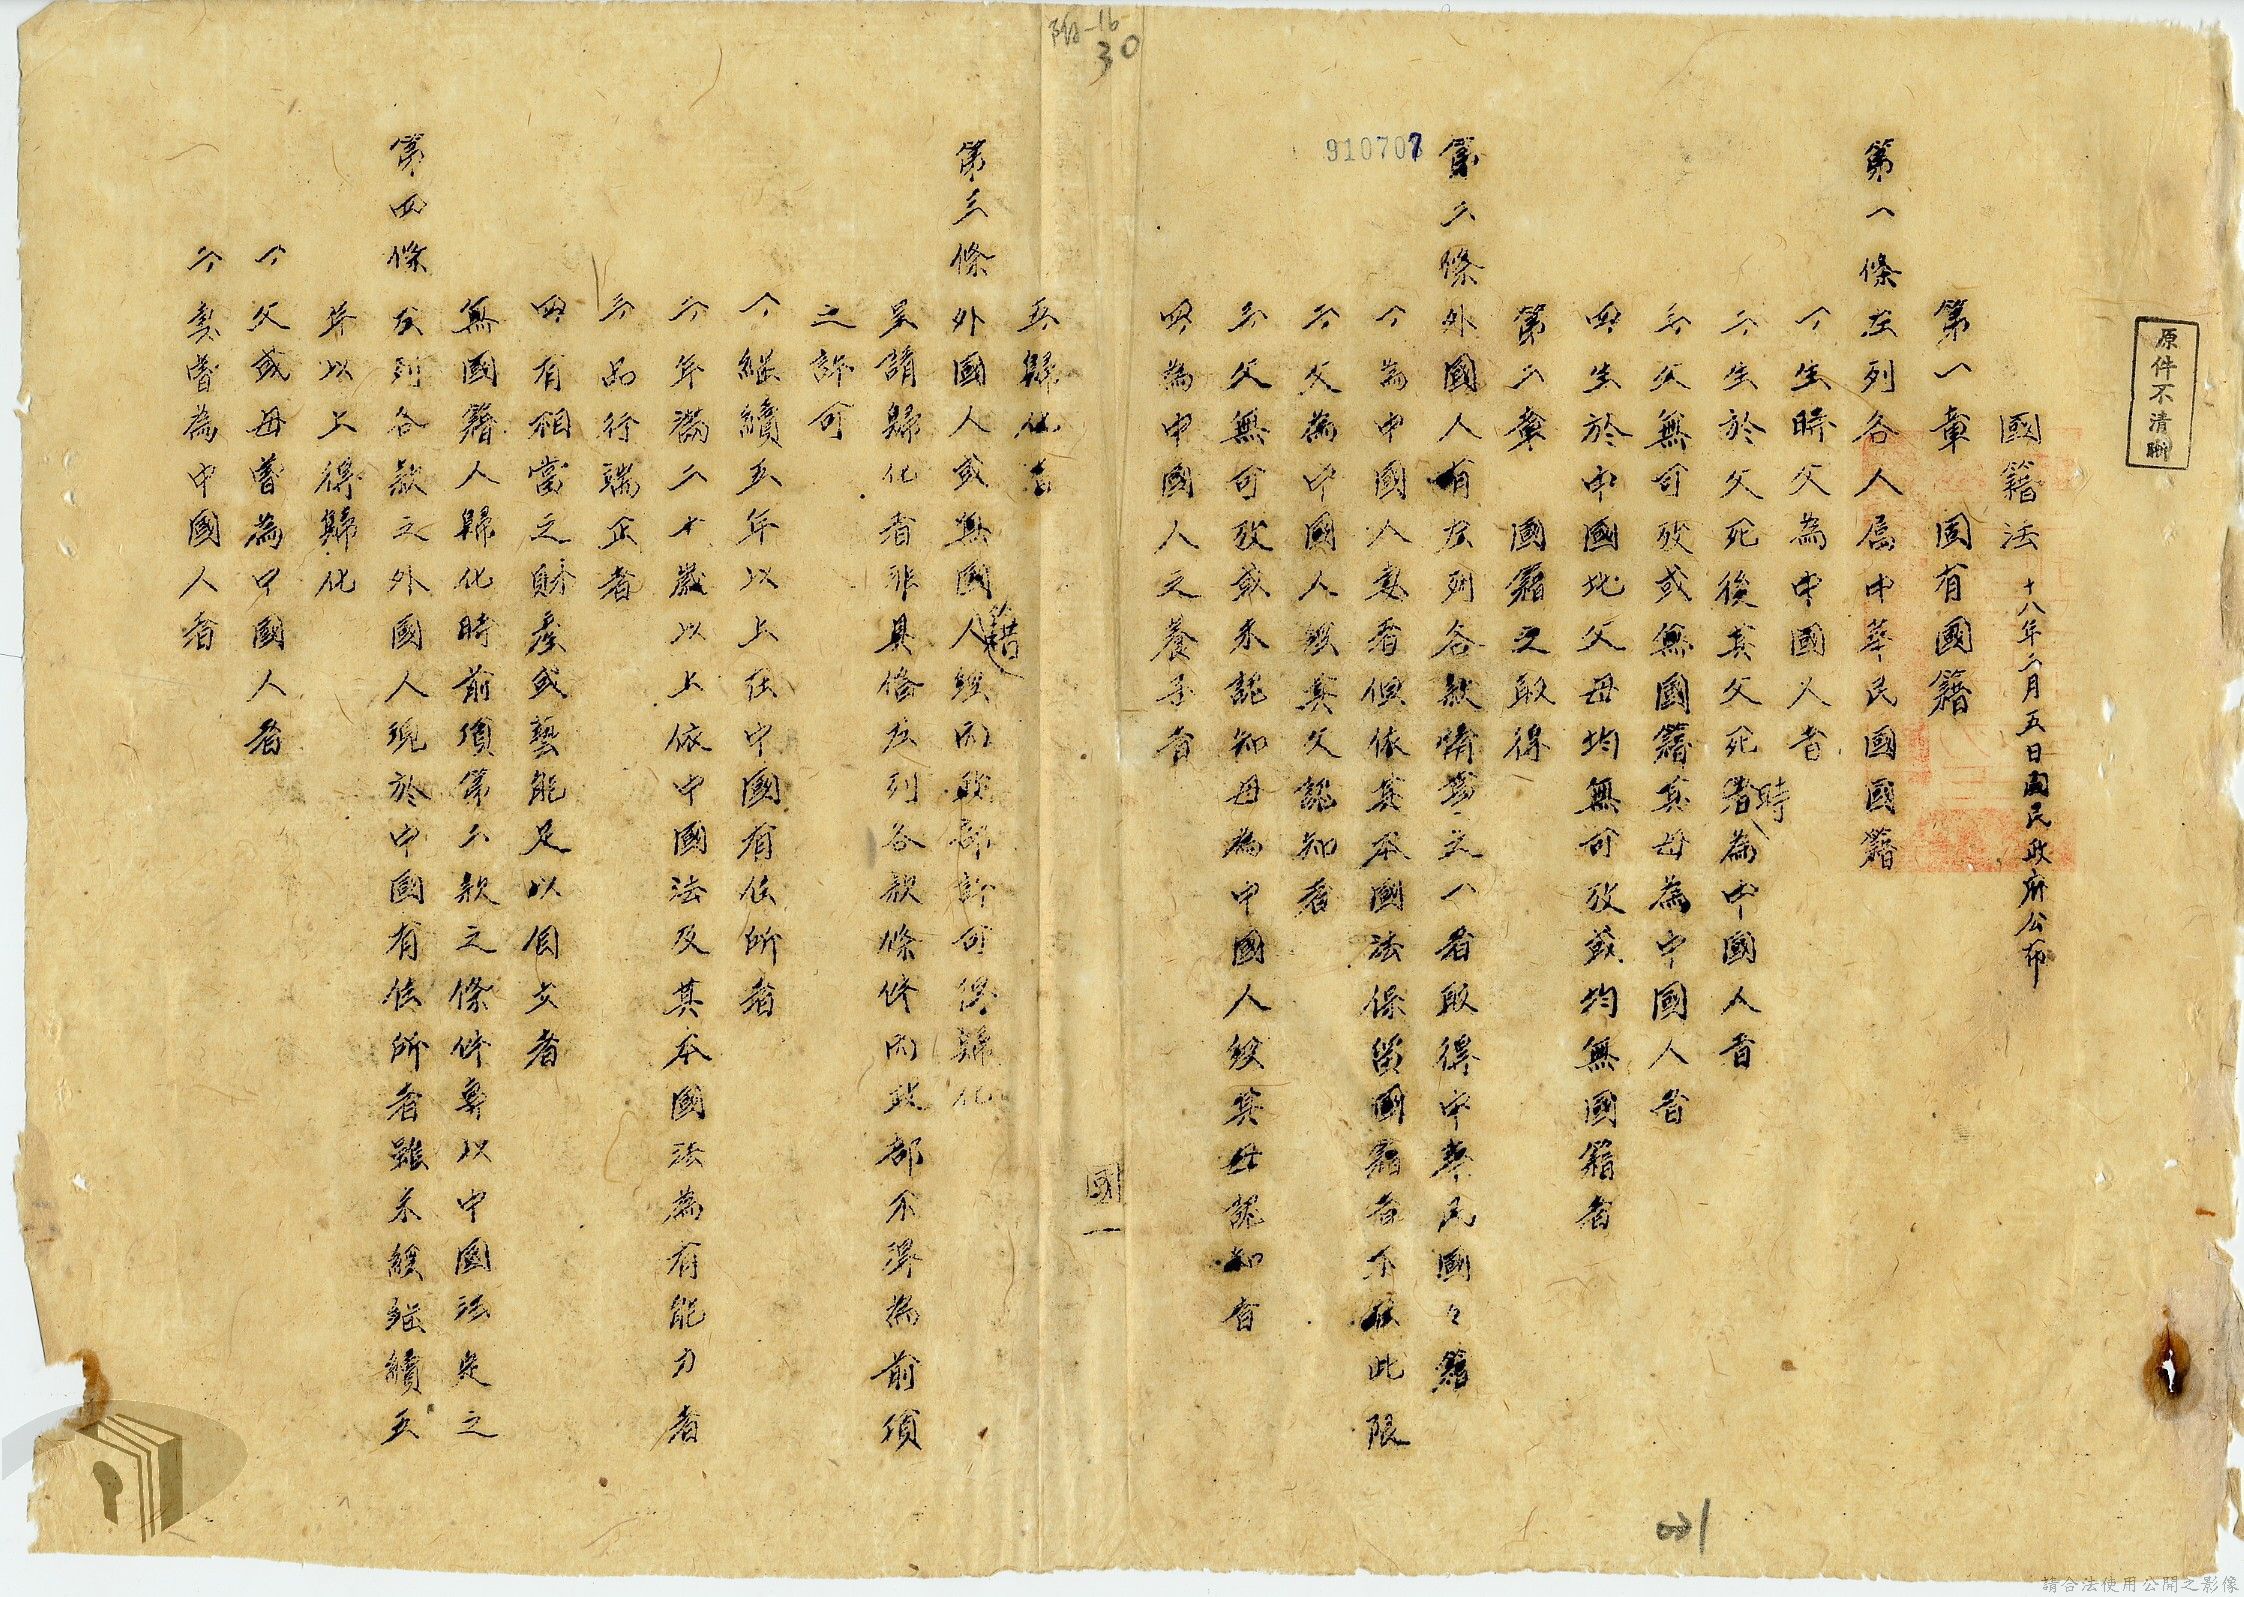 原件不清晰
國籍法 十八年二月五日國民政府公布
第一章 固有國籍
第一條 左列各人屬中華民國國籍
一、生時父為中國人者
二、生於父死後其父死時為中國人者
三、父無可攷或無國籍其母為中國人者
四、生於中國地父母均無可攷或均無國籍者
第二章 國籍之取得
第二條 外國人有左列各款情事之一者取得中華民國々籍
一、為中國人妻者但依其本國法保留國籍者不在此限
二、父為中國人經其父認知者
三、父無可攷或未認知母為中國人經其母認知者
四、為中國人之養子者
附-16
30
910707
國一
五、歸化者
第三條 外國人或無國籍人經內政部許可得歸化
呈請歸化者非具備左列各款條件內政部不得為前項
之許可
一、繼續五年以上在中國有住所者
二、年滿二十歲以上依中國法及其本國法為有能力者
三、品行端正者
四、有相當之財產或藝能足以自立者
無國籍人歸化時前項第二款之條件專以中國法定之
第四條 左列各款之外國人現於中國有住所者雖未經繼續五
年以上得歸化
一、父或母曾為中國人者
二、妻曾為中國人者
請合法使用公開之影像